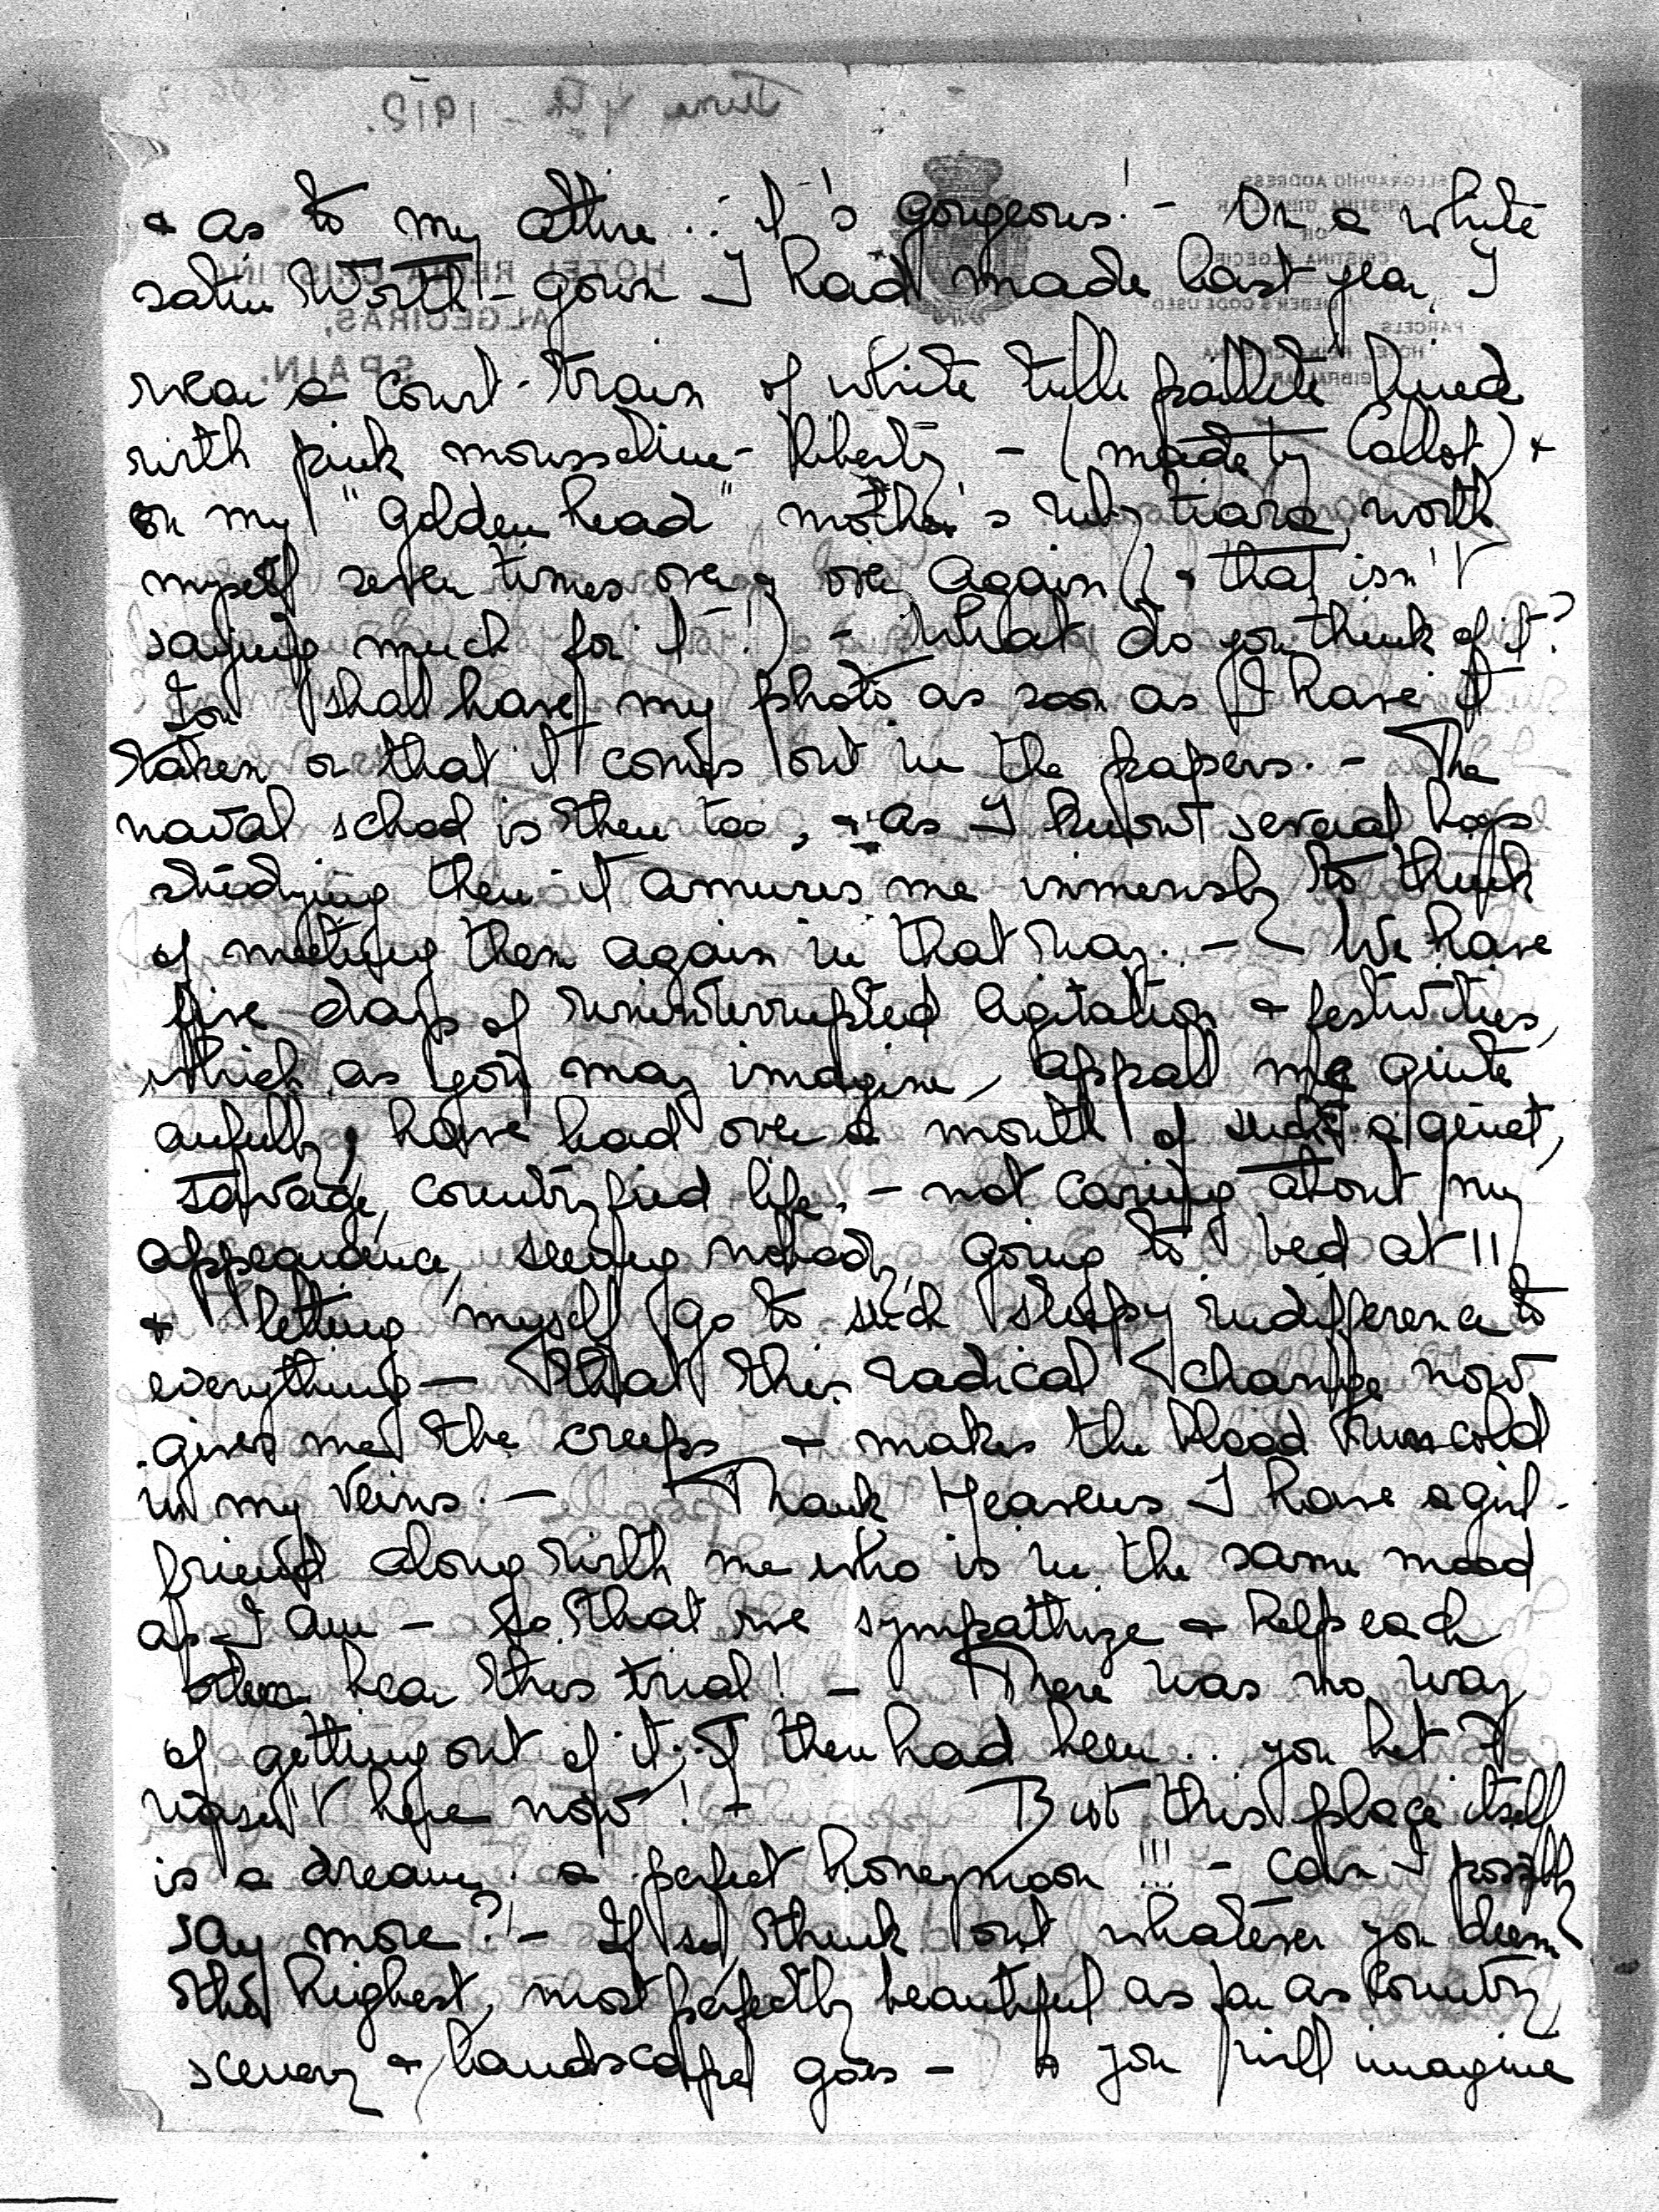 & as to my attire... it's gorgeous! - On a white
satin Worth-gown I had made last year, I
wear a court-train of white tulle pailleté lined
with pink mousseline-liberty - (made by Callot) &
on my "golden head" mother's ruby tiara, worth
myself seven times over & over again (& that isn't
saying much for it - !) - What do you think of it?
You shall have my photo as soon as I have it
taken or that it comes out in the papers. - The
naval school is there too, & as I know several boys
studying there it amuses me immensely to think
of meeting them again in that way. - We have
five days of uninterrupted agitation & festivities,
which, as you may imagine, appall me quite
awfully, have had over a month of such a quiet,
savage, countryfied life, - not caring about my
appearance, seeing nobody, going to bed at 11
& letting myself go to such sleepy indifference to
everything - that this radical change now
gives me the creeps & makes the blood run cold
in my veins. - Thank Heavens I have a girl-
friend along with me who is in the same mood
as I am - so that we sympathize & help each
other bear this trial! - There was no way
of getting out of it; if there had been .. you bet I
wasn't here now! - But this place itself
is a dream. a perfect honeymoon!!! - Can I possibly
say more?! - If so, think out whatever you deem
the highest, most perfectly beautiful as far as country,
scenery & landscape goes - & you will imagine
June 4th - 1912.
HOTEL REINA CRISTINA
ALGECIRAS,
SPAIN.
TELEGRAPHIC ADDRESS
CRISTINA, GIBRALTAR
OR
CRISTINA, ALGECIRAS
LIEBER'S CODE USED
PARCELS
HOTEL REINA CRISTINA
GIBRALTAR